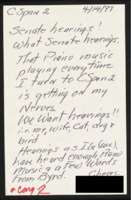 C-Span 2 4/14/97
Senate hearings!
What Senate hearings.
That Piano music
playing everytime
I turn to CSpan2
is getting on my
Nerves.
We Want hearings!!
i.e. me, wife, Cat, dog &
bird
Hearings as I (we)
have heard enough
Music a few Words
from Byrd.
Cheers
2